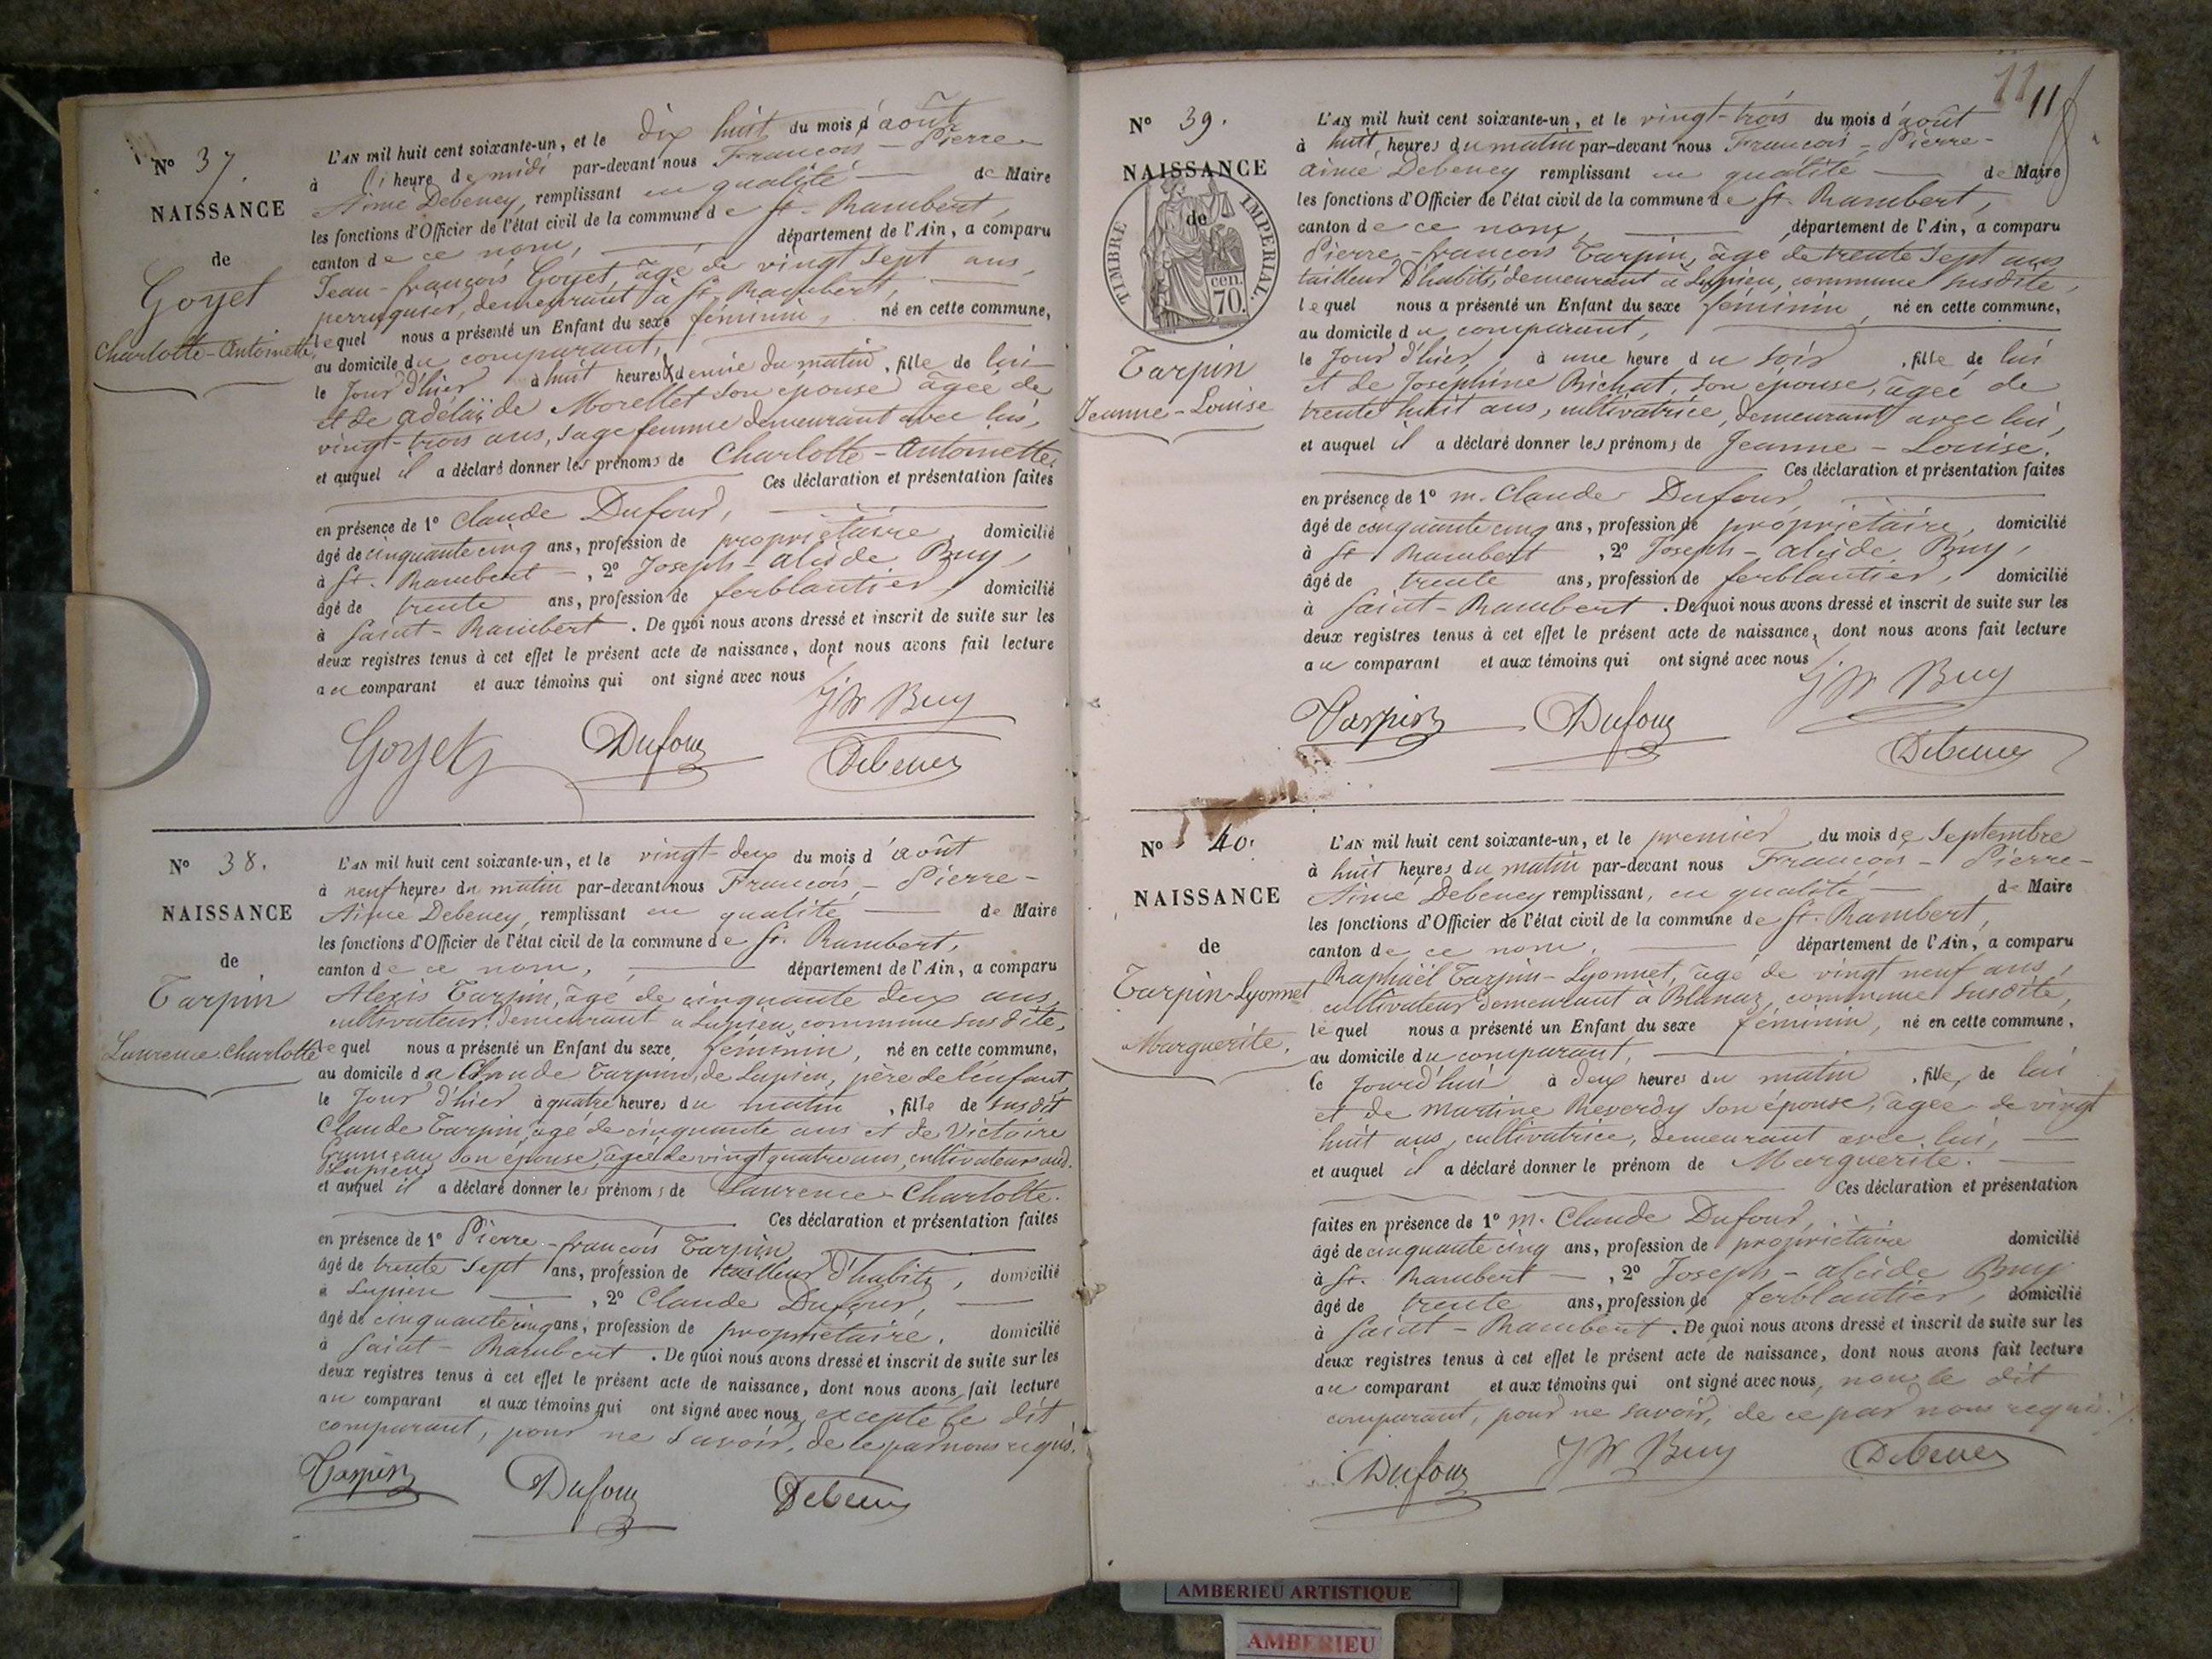 N° 37.
NAISSANCE
de
Goyet
Charlotte-Antoinette
L'AN mil huit cent soixante-un, et le dix huit du mois d'août
à heure de midi par-devant nous François-Pierre
Aimé Debeney, remplissant en qualité de Maire
les fonctions d'Officier de l'état civil de la commune de St. Rambert,
canton de ce nom, département de l'Ain, a comparu
Jean-françois Goyet, âgé de vingt sept ans,
perruquier, demeurant à St. Rambert,
lequel nous a présenté un Enfant du sexe féminin, né en cette commune,
au domicile du comparant,
le Jour d'hier à huit heures & demie du matin, fille de lui
et de adélaïde Morellet son épouse âgée de
vingt-trois ans, sage femme demeurant avec lui,
et auquel il a déclaré donner les prénoms de Charlotte-Antoinette.
Ces déclaration et présentation faites
en présence de 1° Claude Dufour,
âgé de cinquante cinq ans, profession de propriétaire, domicilié
à St. Rambert, 2° Joseph-alcide Buy,
âgé de trente ans, profession de ferblantier, domicilié
à Saint-Rambert. De quoi nous avons dressé et inscrit de suite sur les
deux registres tenus à cet effet le présent acte de naissance, dont nous avons fait lecture
au comparant et aux témoins qui ont signé avec nous
Goyet Dufour Buy
Debeney
N° 38.
NAISSANCE
de
Tarpin
Laurence-Charlotte
L'AN mil huit cent soixante-un, et le vingt-deux du mois d'août
à neuf heures du matin par-devant nous François-Pierre-
Aimé Debeney, remplissant en qualité de Maire
les fonctions d'Officier de l'état civil de la commune de St. Rambert,
canton de ce nom, département de l'Ain, a comparu
Alexis Tarpin, âgé de cinquante deux ans,
cultivateur demeurant à Lupieu, commune susdite,
lequel nous a présenté un Enfant du sexe féminin, né en cette commune,
au domicile de Claude Tarpin, de Lupieu, père de l'enfant
le Jour d'hier à quatre heures du matin, fille de susdit
Claude Tarpin, âgé de cinquante ans et de Victoire
son épouse, âgée de vingt quatre ans, cultivateurs aud.
Lupieu
et auquel il a déclaré donner les prénoms de Laurence-Charlotte.
Ces déclaration et présentation faites
en présence de 1° Pierre-françois Tarpin,
âgé de trente sept ans, profession de tailleur d'habits, domicilié
à Lupieu, 2° Claude Dufour,
âgé de cinquante cinq ans, profession de propriétaire, domicilié
à Saint-Rambert. De quoi nous avons dressé et inscrit de suite sur les
deux registres tenus à cet effet le présent acte de naissance, dont nous avons fait lecture
au comparant et aux témoins qui ont signé avec nous excepté le dit
comparant, pour ne savoir, de ce par nous requis.
Tarpin Dufour Debeney
11 11
N° 39.
NAISSANCE
de
TIMBRE IMPÉRIAL.
cen.
70.
Tarpin
Jeanne-Louise
L'AN mil huit cent soixante-un, et le vingt-trois du mois d'août
à huit heures du matin par-devant nous François-Pierre-
aimé Debeney remplissant en qualité de Maire
les fonctions d'Officier de l'état civil de la commune de St. Rambert,
canton de ce nom, département de l'Ain, a comparu
Pierre-françois Tarpin, âgé de trente sept ans
tailleur d'habits, demeurant à Lupieu, commune susdite,
lequel nous a présenté un Enfant du sexe féminin, né en cette commune,
au domicile du comparant,
le Jour d'hier, à une heure du soir, fille de lui
et de Joséphine Bichat, son épouse, âgée de
trente huit ans, cultivatrice, demeurant avec lui,
et auquel il a déclaré donner les prénoms de Jeanne-Louise.
Ces déclaration et présentation faites
en présence de 1° m. Claude Dufour,
âgé de cinquante cinq ans, profession de propriétaire, domicilié
à St. Rambert, 2° Joseph-alcide Buy,
âgé de trente ans, profession de ferblantier, domicilié
à Saint-Rambert. De quoi nous avons dressé et inscrit de suite sur les
deux registres tenus à cet effet le présent acte de naissance, dont nous avons fait lecture
au comparant et aux témoins qui ont signé avec nous
Buy
Tarpin Dufour
Debeney
N° 40.
NAISSANCE
de
Tarpin-Lyonnet
Marguerite.
L'AN mil huit cent soixante-un, et le premier du mois de Septembre
à huit heures du matin par-devant nous François-Pierre-
Aimé Debeney remplissant, en qualité de Maire
les fonctions d'Officier de l'état civil de la commune de St. Rambert,
canton de ce nom, département de l'Ain, a comparu
Raphaël Tarpin-Lyonnet, âgé de vingt neuf ans,
cultivateur demeurant à Blanaz, commune susdite,
lequel nous a présenté un Enfant du sexe féminin, né en cette commune,
au domicile du comparant,
ce jourd'hui à deux heures du matin, fille de lui
et de Martine Reverdy son épouse, âgée de vingt
huit ans, cultivatrice, demeurant avec lui,
et auquel il a déclaré donner le prénom de Marguerite.
Ces déclaration et présentation
faites en présence de 1° m. Claude Dufour,
âgé de cinquante cinq ans, profession de propriétaire domicilié
à St. Rambert, 2° Joseph-alcide Buy
âgé de trente ans, profession de ferblantier, domicilié
à Saint-Rambert. De quoi nous avons dressé et inscrit de suite sur les
deux registres tenus à cet effet le présent acte de naissance, dont nous avons fait lecture
au comparant et aux témoins qui ont signé avec nous, non le dit
comparant, pour ne savoir, de ce par nous requis.
Dufour Buy Debeney
AMBERIEU ARTISTIQUE
AMBERIEU